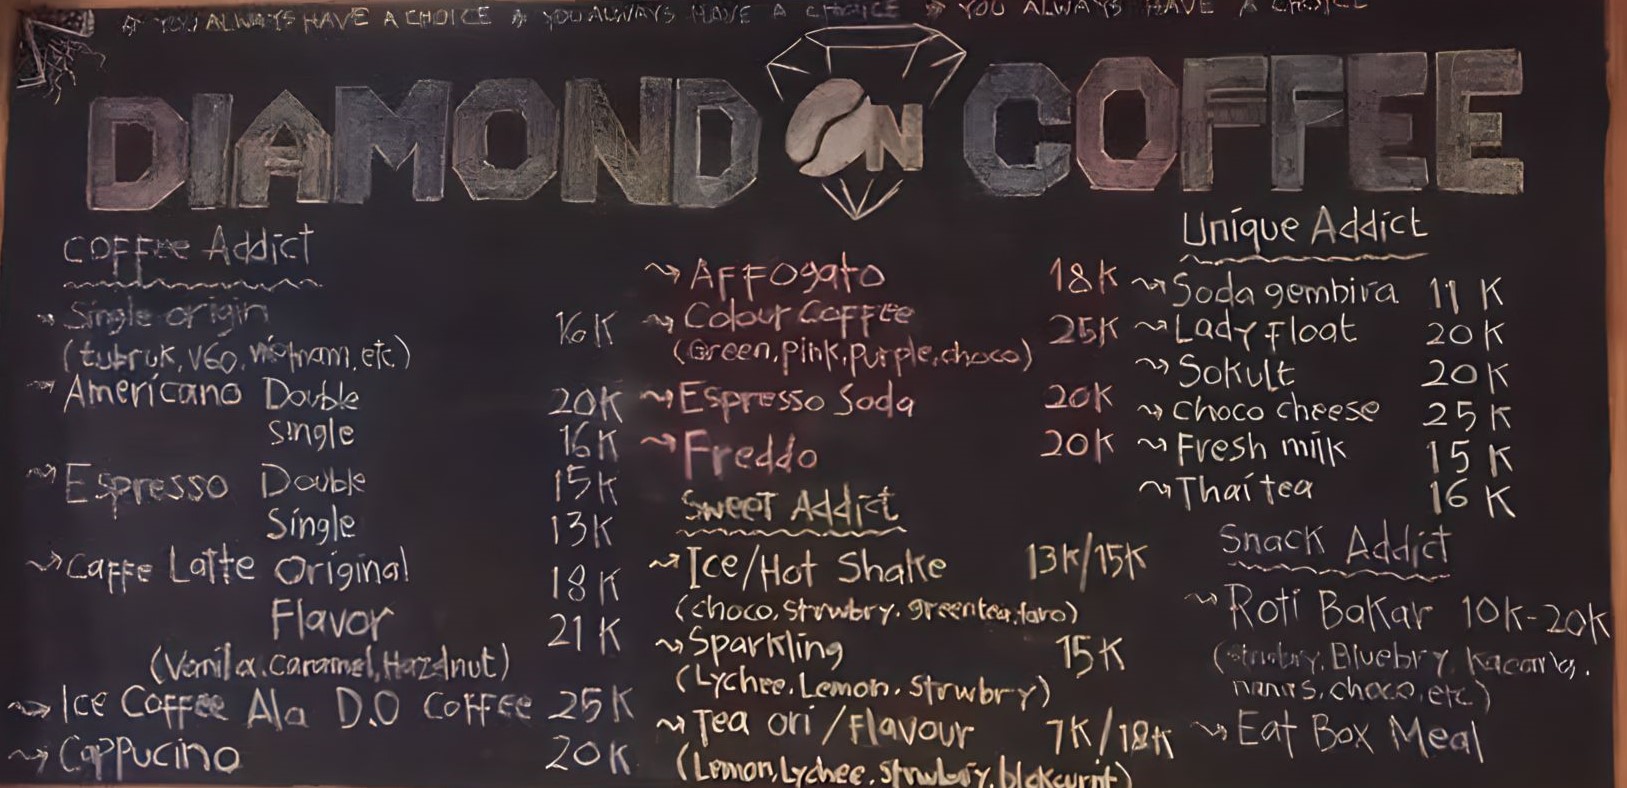 YOU ALWAYS HAVE A CHOICE YOU ALWAYS HAVE A CHOICE YOU ALWAYS HAVE A CHOICE
DIAMOND ON COFFEE
Coffee Addict
Single origin 16K
(tubruk, V60, vietnam, etc.)
Americano Double 20K
Single 16K
Espresso Double 15K
Single 13K
Caffe Latte Original 18K
Flavor 21K
(Vanilla, Caramel, Hazelnut)
Ice Coffee Ala D.O Coffee 25K
Cappucino 20K
Affogato 18K
Colour Coffee 25K
(Green, Pink, Purple, choco)
Espresso Soda 20K
Freddo 20K
Sweet Addict
Ice/Hot Shake 13K/15K
(choco, strwbry, greentea, taro)
Sparkling 15K
(Lychee, Lemon, Strwbry)
Tea ori/Flavour 7K/18K
(Lemon, Lychee, strwbry, blckcurnt)
Unique Addict
Soda gembira 11K
Lady Float 20K
Sokult 20K
Choco cheese 25K
Fresh milk 15K
Thai tea 16K
Snack Addict
Roti Bakar 10K-20K
(strwbry, Bluebry, Kacang,
nanas, choco, etc.)
Eat Box Meal